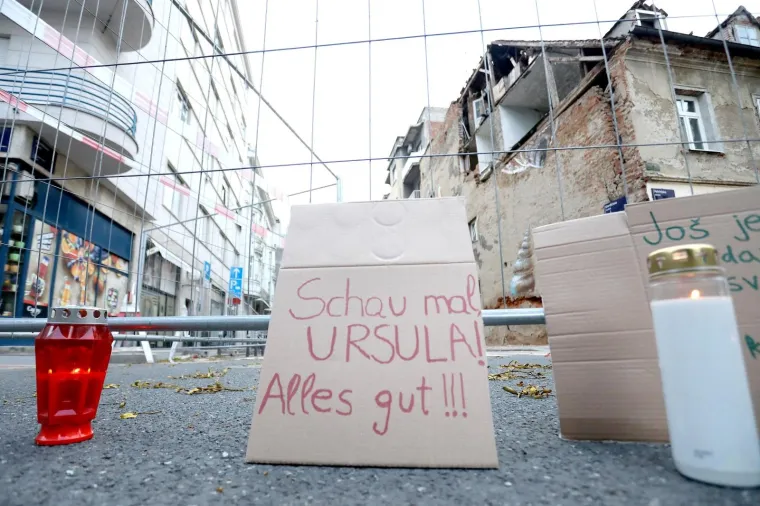 Schau mal
URSULA!
Alles gut!!!
Još je
da
sv